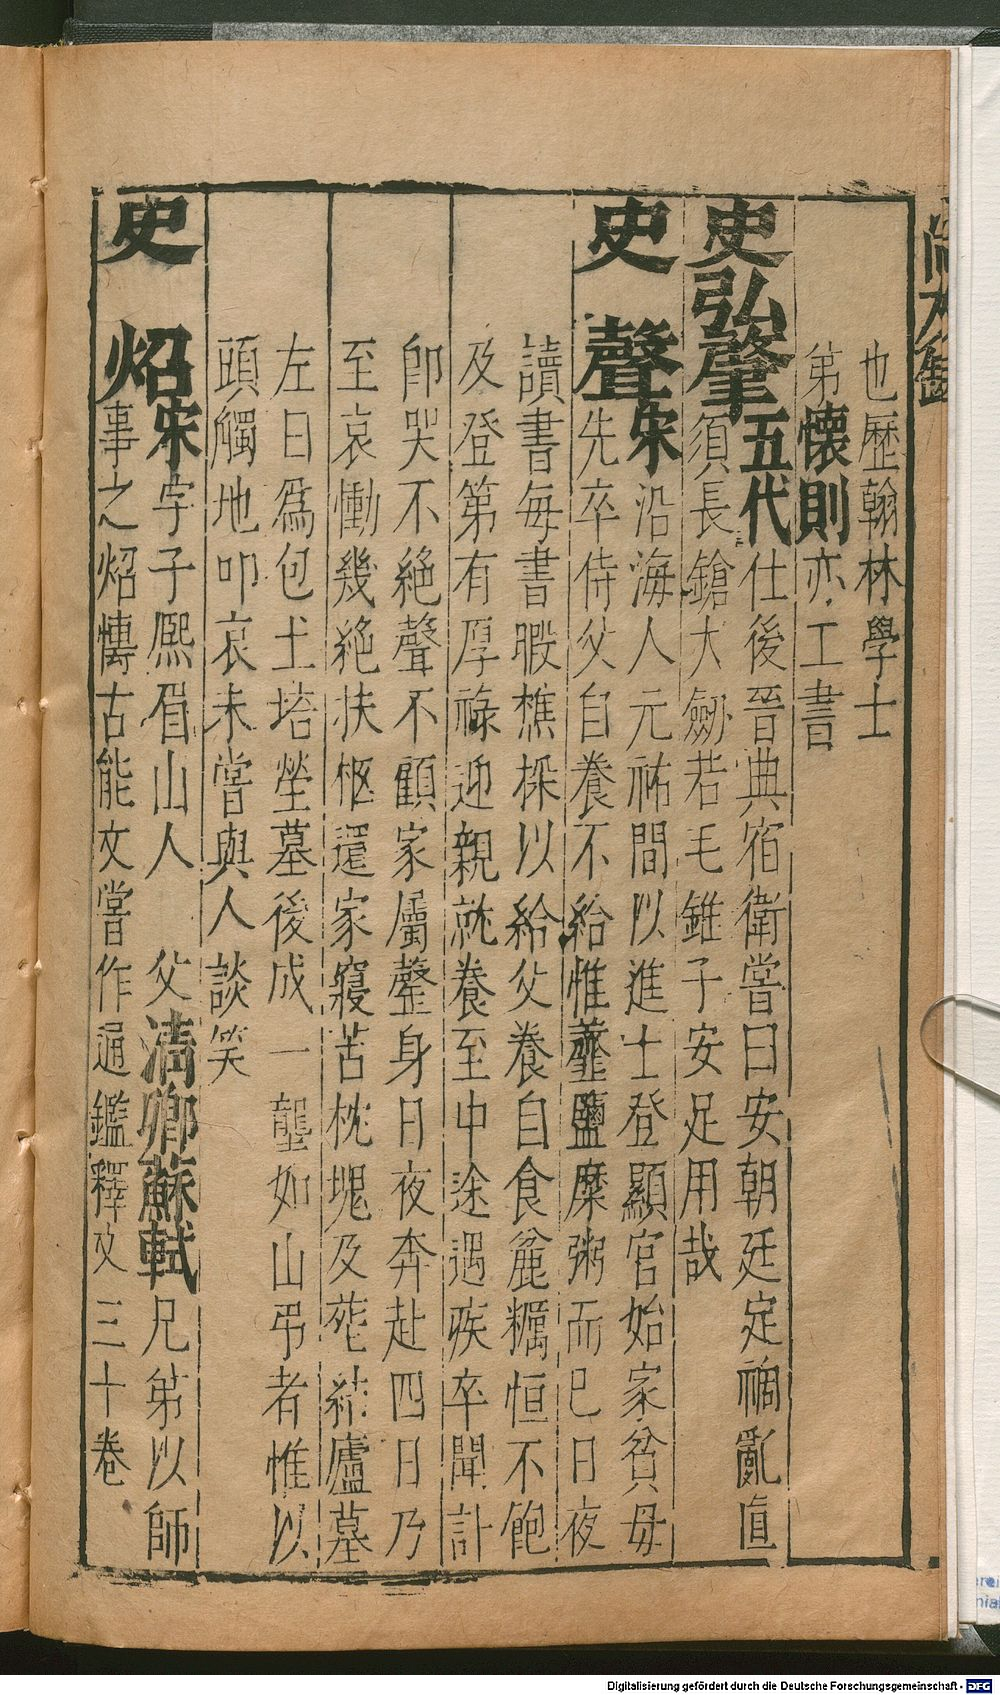 也歷翰林學士
第懷則亦工書
史弘肇五代仕後晉典宿衛嘗曰安朝廷定禍亂直
須長鎗大劒若毛錐子安足用哉
史聲宋沿海人元祐間以進士登顯官始家貧母
先卒侍父自養不給惟虀鹽糜粥而巳日夜
讀書每書暇樵採以給父養自食麄糲恒不飽
及登第有厚祿迎親就養至中途遇疾卒聞訃
卽哭不絶聲不顧家屬罄身日夜奔赴四日乃
至哀慟幾絶扶柩還家寢苫枕塊及塟結廬墓
左日爲包土培塋墓後成一壟如山弔者惟以
頭觸地叩哀未嘗與人談笑
史炤宋字子熈眉山人 父淸卿蘇軾兄弟以師
事之炤慱古能文嘗作通鑑釋文三十卷
Digitalisierung gefördert durch die Deutsche Forschungsgemeinschaft - DFG